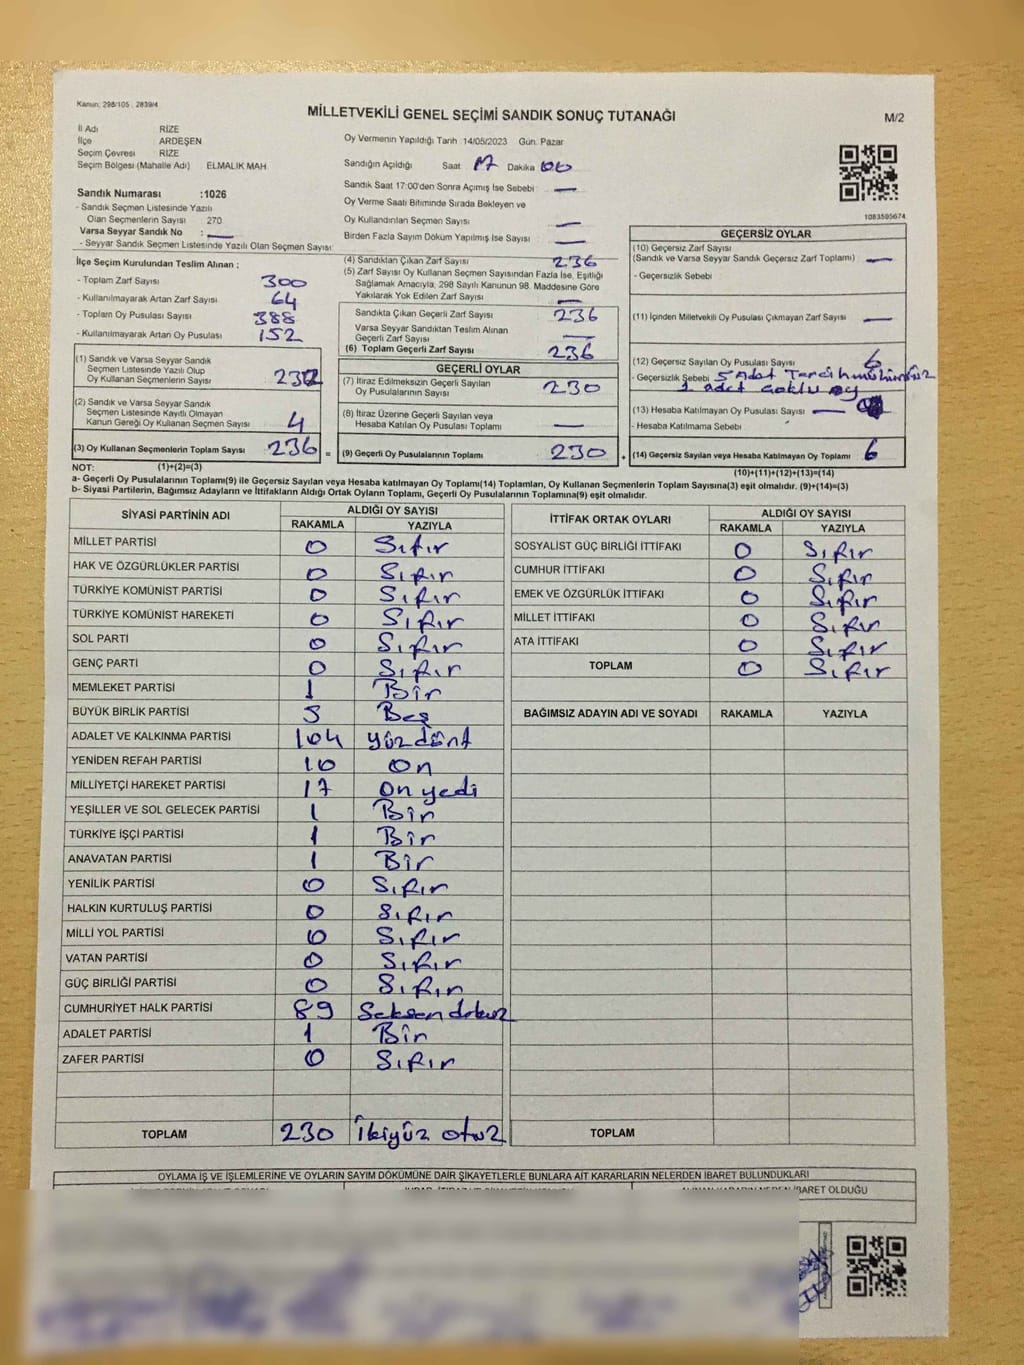 Kanun: 298/105 , 2839/4
MİLLETVEKİLİ GENEL SEÇİMİ SANDIK SONUÇ TUTANAĞI
M/2
İl Adı RİZE
İlçe ARDEŞEN
Seçim Çevresi RİZE
Seçim Bölgesi (Mahalle Adı) ELMALIK MAH.
Sandık Numarası :1026
- Sandık Seçmen Listesinde Yazılı
Olan Seçmenlerin Sayısı : 270
Varsa Seyyar Sandık No : —
- Seyyar Sandık Seçmen Listesinde Yazılı Olan Seçmen Sayısı:
Oy Vermenin Yapıldığı Tarih :14/05/2023 Gün: Pazar
Sandığın Açıldığı Saat 17 Dakika 00
Sandık Saat 17:00'den Sonra Açılmış İse Sebebi —
Oy Verme Saati Bitiminde Sırada Bekleyen ve
Oy Kullandırılan Seçmen Sayısı —
Birden Fazla Sayım Döküm Yapılmış İse Sayısı —
1083505674
İlçe Seçim Kurulundan Teslim Alınan :
- Toplam Zarf Sayısı 300
- Kullanılmayarak Artan Zarf Sayısı 64
- Toplam Oy Pusulası Sayısı 388
- Kullanılmayarak Artan Oy Pusulası 152
(1) Sandık ve Varsa Seyyar Sandık
Seçmen Listesinde Yazılı Olup
Oy Kullanan Seçmenlerin Sayısı 232
(2) Sandık ve Varsa Seyyar Sandık
Seçmen Listesinde Kayıtlı Olmayan
Kanun Gereği Oy Kullanan Seçmen Sayısı 4
(3) Oy Kullanan Seçmenlerin Toplam Sayısı 236 =
(4) Sandıktan Çıkan Zarf Sayısı 236
(5) Zarf Sayısı Oy Kullanan Seçmen Sayısından Fazla İse, Eşitliği
Sağlamak Amacıyla, 298 Sayılı Kanunun 98. Maddesine Göre
Yakılarak Yok Edilen Zarf Sayısı —
Sandıkta Çıkan Geçerli Zarf Sayısı 236
Varsa Seyyar Sandıktan Teslim Alınan
Geçerli Zarf Sayısı —
(6) Toplam Geçerli Zarf Sayısı 236
GEÇERLİ OYLAR
(7) İtiraz Edilmeksizin Geçerli Sayılan
Oy Pusulalarının Sayısı 230
(8) İtiraz Üzerine Geçerli Sayılan veya
Hesaba Katılan Oy Pusulası Toplamı —
(9) Geçerli Oy Pusulalarının Toplamı 230 +
GEÇERSİZ OYLAR
(10) Geçersiz Zarf Sayısı
(Sandık ve Varsa Seyyar Sandık Geçersiz Zarf Toplamı) —
- Geçersizlik Sebebi :
(11) İçinden Milletvekili Oy Pusulası Çıkmayan Zarf Sayısı —
(12) Geçersiz Sayılan Oy Pusulası Sayısı 6
- Geçersizlik Sebebi 5 Adet Tercih mühürsüz
1 adet Çoklu oy
(13) Hesaba Katılmayan Oy Pusulası Sayısı —
- Hesaba Katılmama Sebebi :
(14) Geçersiz Sayılan veya Hesaba Katılmayan Oy Toplamı 6
NOT: (1)+(2)=(3) (10)+(11)+(12)+(13)=(14)
a- Geçerli Oy Pusulalarının Toplamı(9) ile Geçersiz Sayılan veya Hesaba Katılmayan Oy Toplamı(14) Toplamları, Oy Kullanan Seçmenlerin Toplam Sayısına(3) eşit olmalıdır. (9)+(14)=(3)
b- Siyasi Partilerin, Bağımsız Adayların ve İttifakların Aldığı Ortak Oyların Toplamı, Geçerli Oy Pusulalarının Toplamına(9) eşit olmalıdır.
SİYASİ PARTİNİN ADI ALDIĞI OY SAYISI
RAKAMLA YAZIYLA
MİLLET PARTİSİ 0 Sıfır
HAK VE ÖZGÜRLÜKLER PARTİSİ 0 Sıfır
TÜRKİYE KOMÜNİST PARTİSİ 0 Sıfır
TÜRKİYE KOMÜNİST HAREKETİ 0 Sıfır
SOL PARTİ 0 Sıfır
GENÇ PARTİ 0 Sıfır
MEMLEKET PARTİSİ 1 Bir
BÜYÜK BİRLİK PARTİSİ 5 Beş
ADALET VE KALKINMA PARTİSİ 104 yüzdört
YENİDEN REFAH PARTİSİ 10 on
MİLLİYETÇİ HAREKET PARTİSİ 17 onyedi
YEŞİLLER VE SOL GELECEK PARTİSİ 1 Bir
TÜRKİYE İŞÇİ PARTİSİ 1 Bir
ANAVATAN PARTİSİ 1 Bir
YENİLİK PARTİSİ 0 Sıfır
HALKIN KURTULUŞ PARTİSİ 0 Sıfır
MİLLİ YOL PARTİSİ 0 Sıfır
VATAN PARTİSİ 0 Sıfır
GÜÇ BİRLİĞİ PARTİSİ 0 Sıfır
CUMHURİYET HALK PARTİSİ 89 Seksendokuz
ADALET PARTİSİ 1 Bir
ZAFER PARTİSİ 0 Sıfır
TOPLAM 230 İkiyüz otuz
İTTİFAK ORTAK OYLARI ALDIĞI OY SAYISI
RAKAMLA YAZIYLA
SOSYALİST GÜÇ BİRLİĞİ İTTİFAKI 0 Sıfır
CUMHUR İTTİFAKI 0 Sıfır
EMEK VE ÖZGÜRLÜK İTTİFAKI 0 Sıfır
MİLLET İTTİFAKI 0 Sıfır
ATA İTTİFAKI 0 Sıfır
TOPLAM 0 Sıfır
BAĞIMSIZ ADAYIN ADI VE SOYADI RAKAMLA YAZIYLA
TOPLAM
OYLAMA İŞ VE İŞLEMLERİNE VE OYLARIN SAYIM DÖKÜMÜNE DAİR ŞİKAYETLERLE BUNLARA AİT KARARLARIN NELERDEN İBARET BULUNDUKLARI
İBARET OLDUĞU